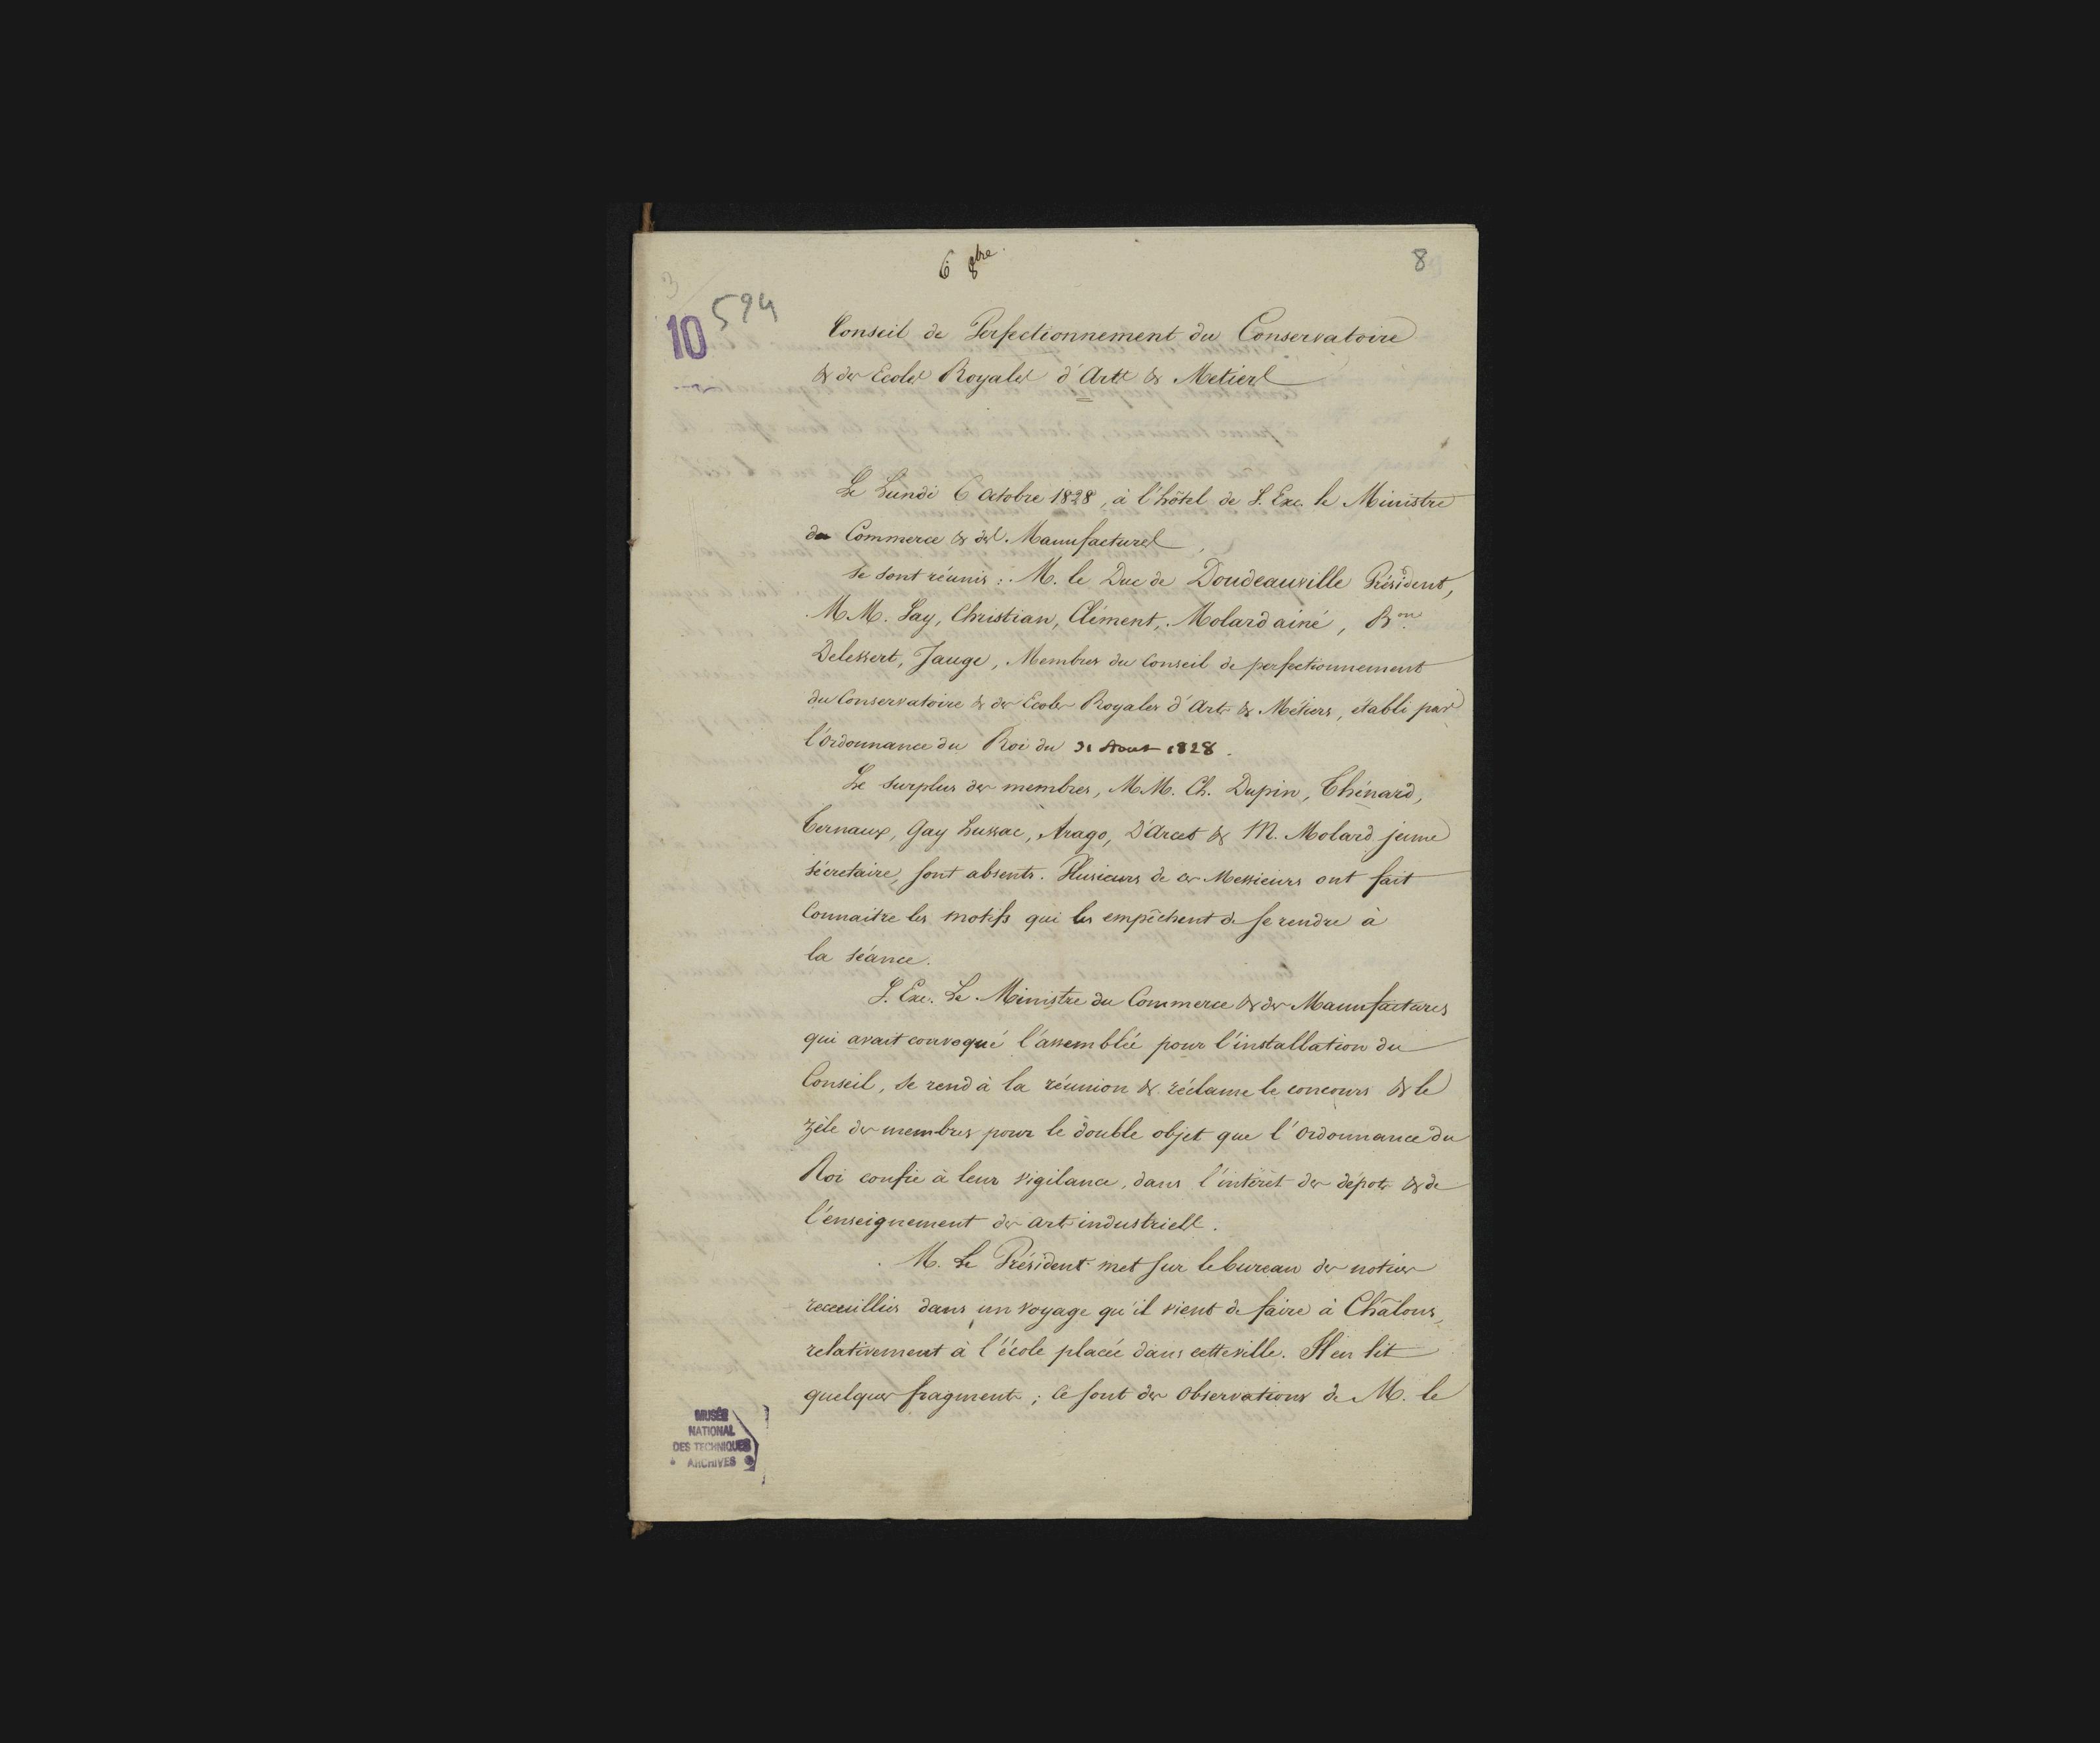 6 8bre.
8
594
10
Conseil de Perfectionnement du Conservatoire
& des Ecoles Royales d'Arts & Metiers
Le Lundi 6 Octobre 1828, à l'hôtel de S. Exc. le Ministre
du Commerce & des Manufactures
se sont réunis : M. le Duc de Doudeauville Président,
MM. Say, Christian, Clément, Molard ainé, Bon.
Delessert, Jauge, Membres du Conseil de perfectionnement
du Conservatoire & des Ecoles Royales d'Arts & Métiers, établi par
l'Ordonnance du Roi du 31 Aout 1828.
Le surplus des membres, MM. Ch. Dupin, Thénard,
Ternaux, Gay Lussac, Arago, D'Arcet & M. Molard jeune
sécretaire, sont absents. Plusieurs de ces Messieurs ont fait
Connaitre les motifs qui les empêchent de se rendre à
la séance.
S. Exc. Le Ministre du Commerce & des Manufactures
qui avait convoqué l'assemblée pour l'installation du
Conseil, se rend à la réunion & réclame le concours & le
zèle des membres pour le double objet que l'Ordonnance du
Roi confie à leur vigilance, dans l'intérêt des dépots & de
l'enseignement des arts industriels.
M. Le Président met sur le bureau des notices
receuillies dans un voyage qu'il vient de faire à Châlons,
relativement à l'école placée dans cette ville. Il en lit
quelques fragments ; ce sont des Observations de M. le
MUSÉE
NATIONAL
DES TECHNIQUES
ARCHIVES